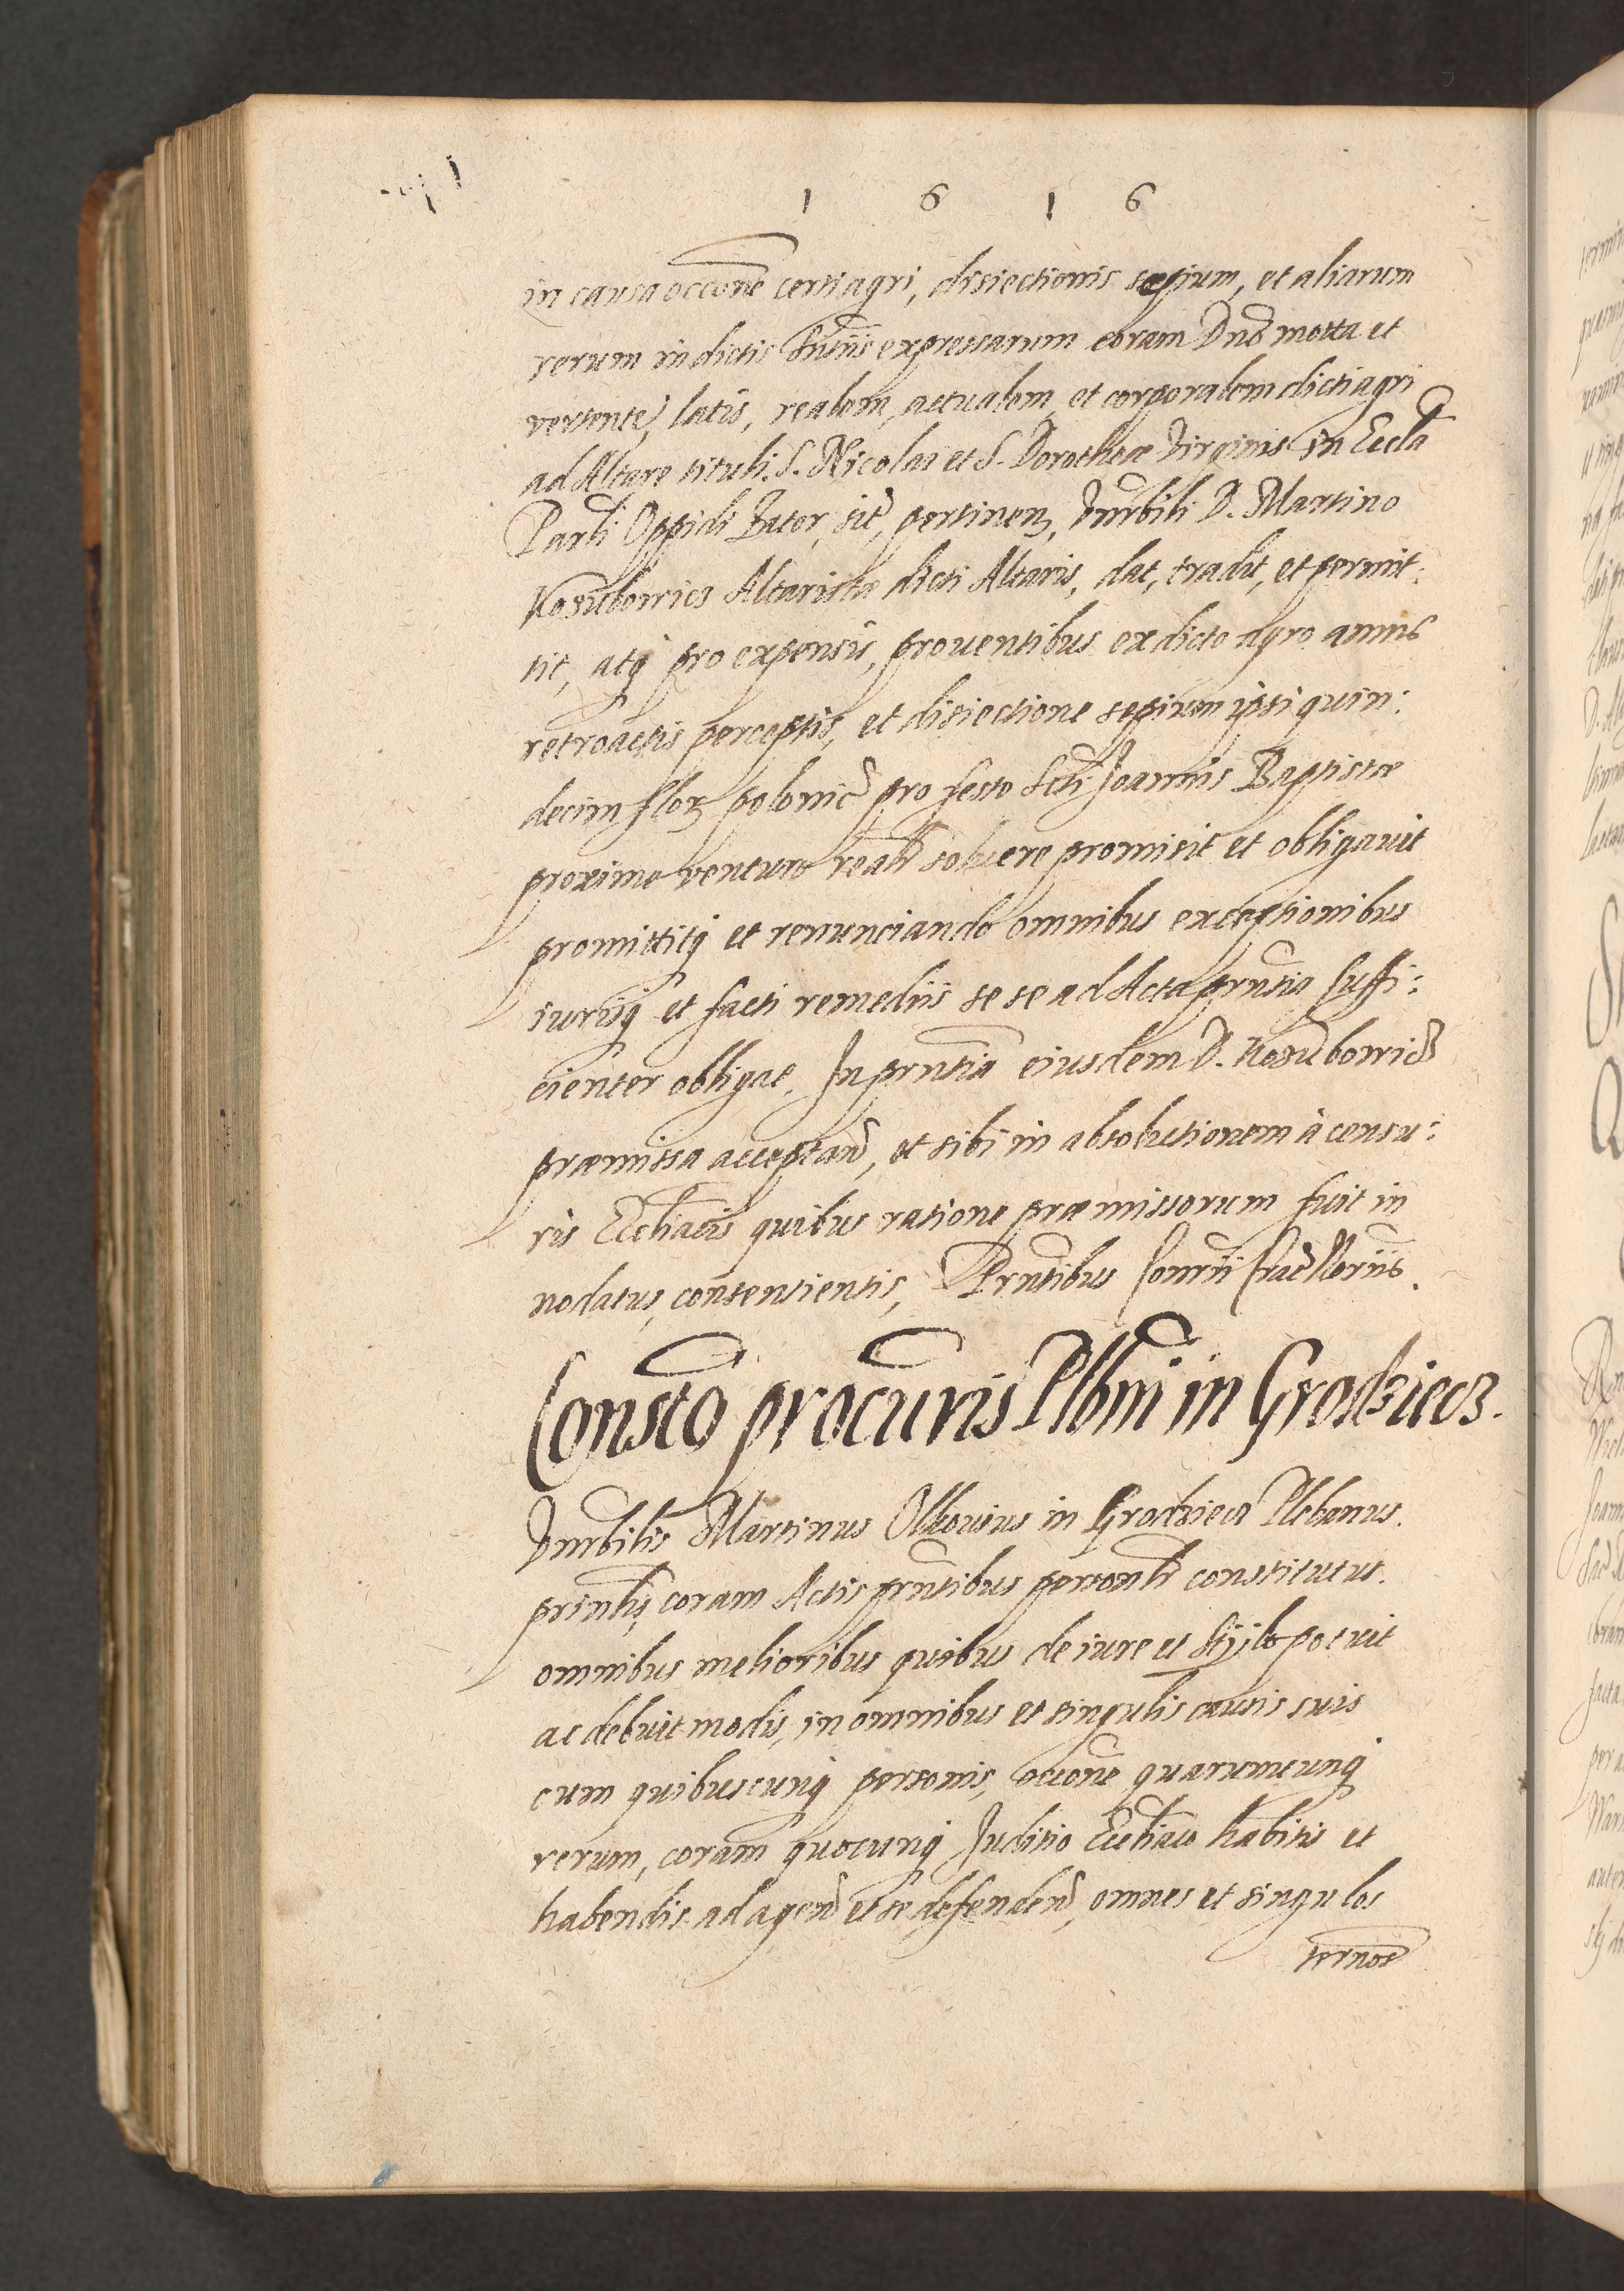 1 6 1 6
in causa occone certi agri, disiectionis sepium, et aliarum
rerum in dictis sntiis expressarum coram Dno mota et
vertente, latis, realem, actualem, et corporalem dicti agri
ad Altare tituli S. Nicolai et S. Dorotheæ Virginis in Eccla
Parli Oppidi Zator, sit, pertinen, Vnrbili D. Martino
Altaristæ dicti Altaris, dat, tradit, et permit:
tit, atq pro expensis, prouentibus ex dicto agro annis
retroactis perceptis, et disiectione sepium ipsi quin:
decim flor polonic pro festo Scti Joannis Baptistæ
proxime venturo realr soluere promisit et obligauit
promittitq et renunciando omnibus exceptionibus
iurisq et facti remediis se se ad Acta prntia suffi:
cienter obligat. In prntia eiusdem D.
præmissa acceptan, et sibi in absolutionem à censu:
ris Eccliacis quibus ratione præmissorum fuit in
nodatus, consentientis, Prntibus
Consto procuris Plbni in Grodziecz.
Vnrbilis Martinus Olkouius in Grodziecz Plebanus.
prinlis, coram Actis prntibus personlr constitutus.
omnibus melioribus quibus de iure et stijlo potuit
ac debuit modis, in omnibus et singulis causis suis
cum quibuscunq personis, occone quarumcunq
rerum, coram quocunq Juditio Eccliaco habitis et
habendis ad agend et se defenden, omnes et singulos
ternos